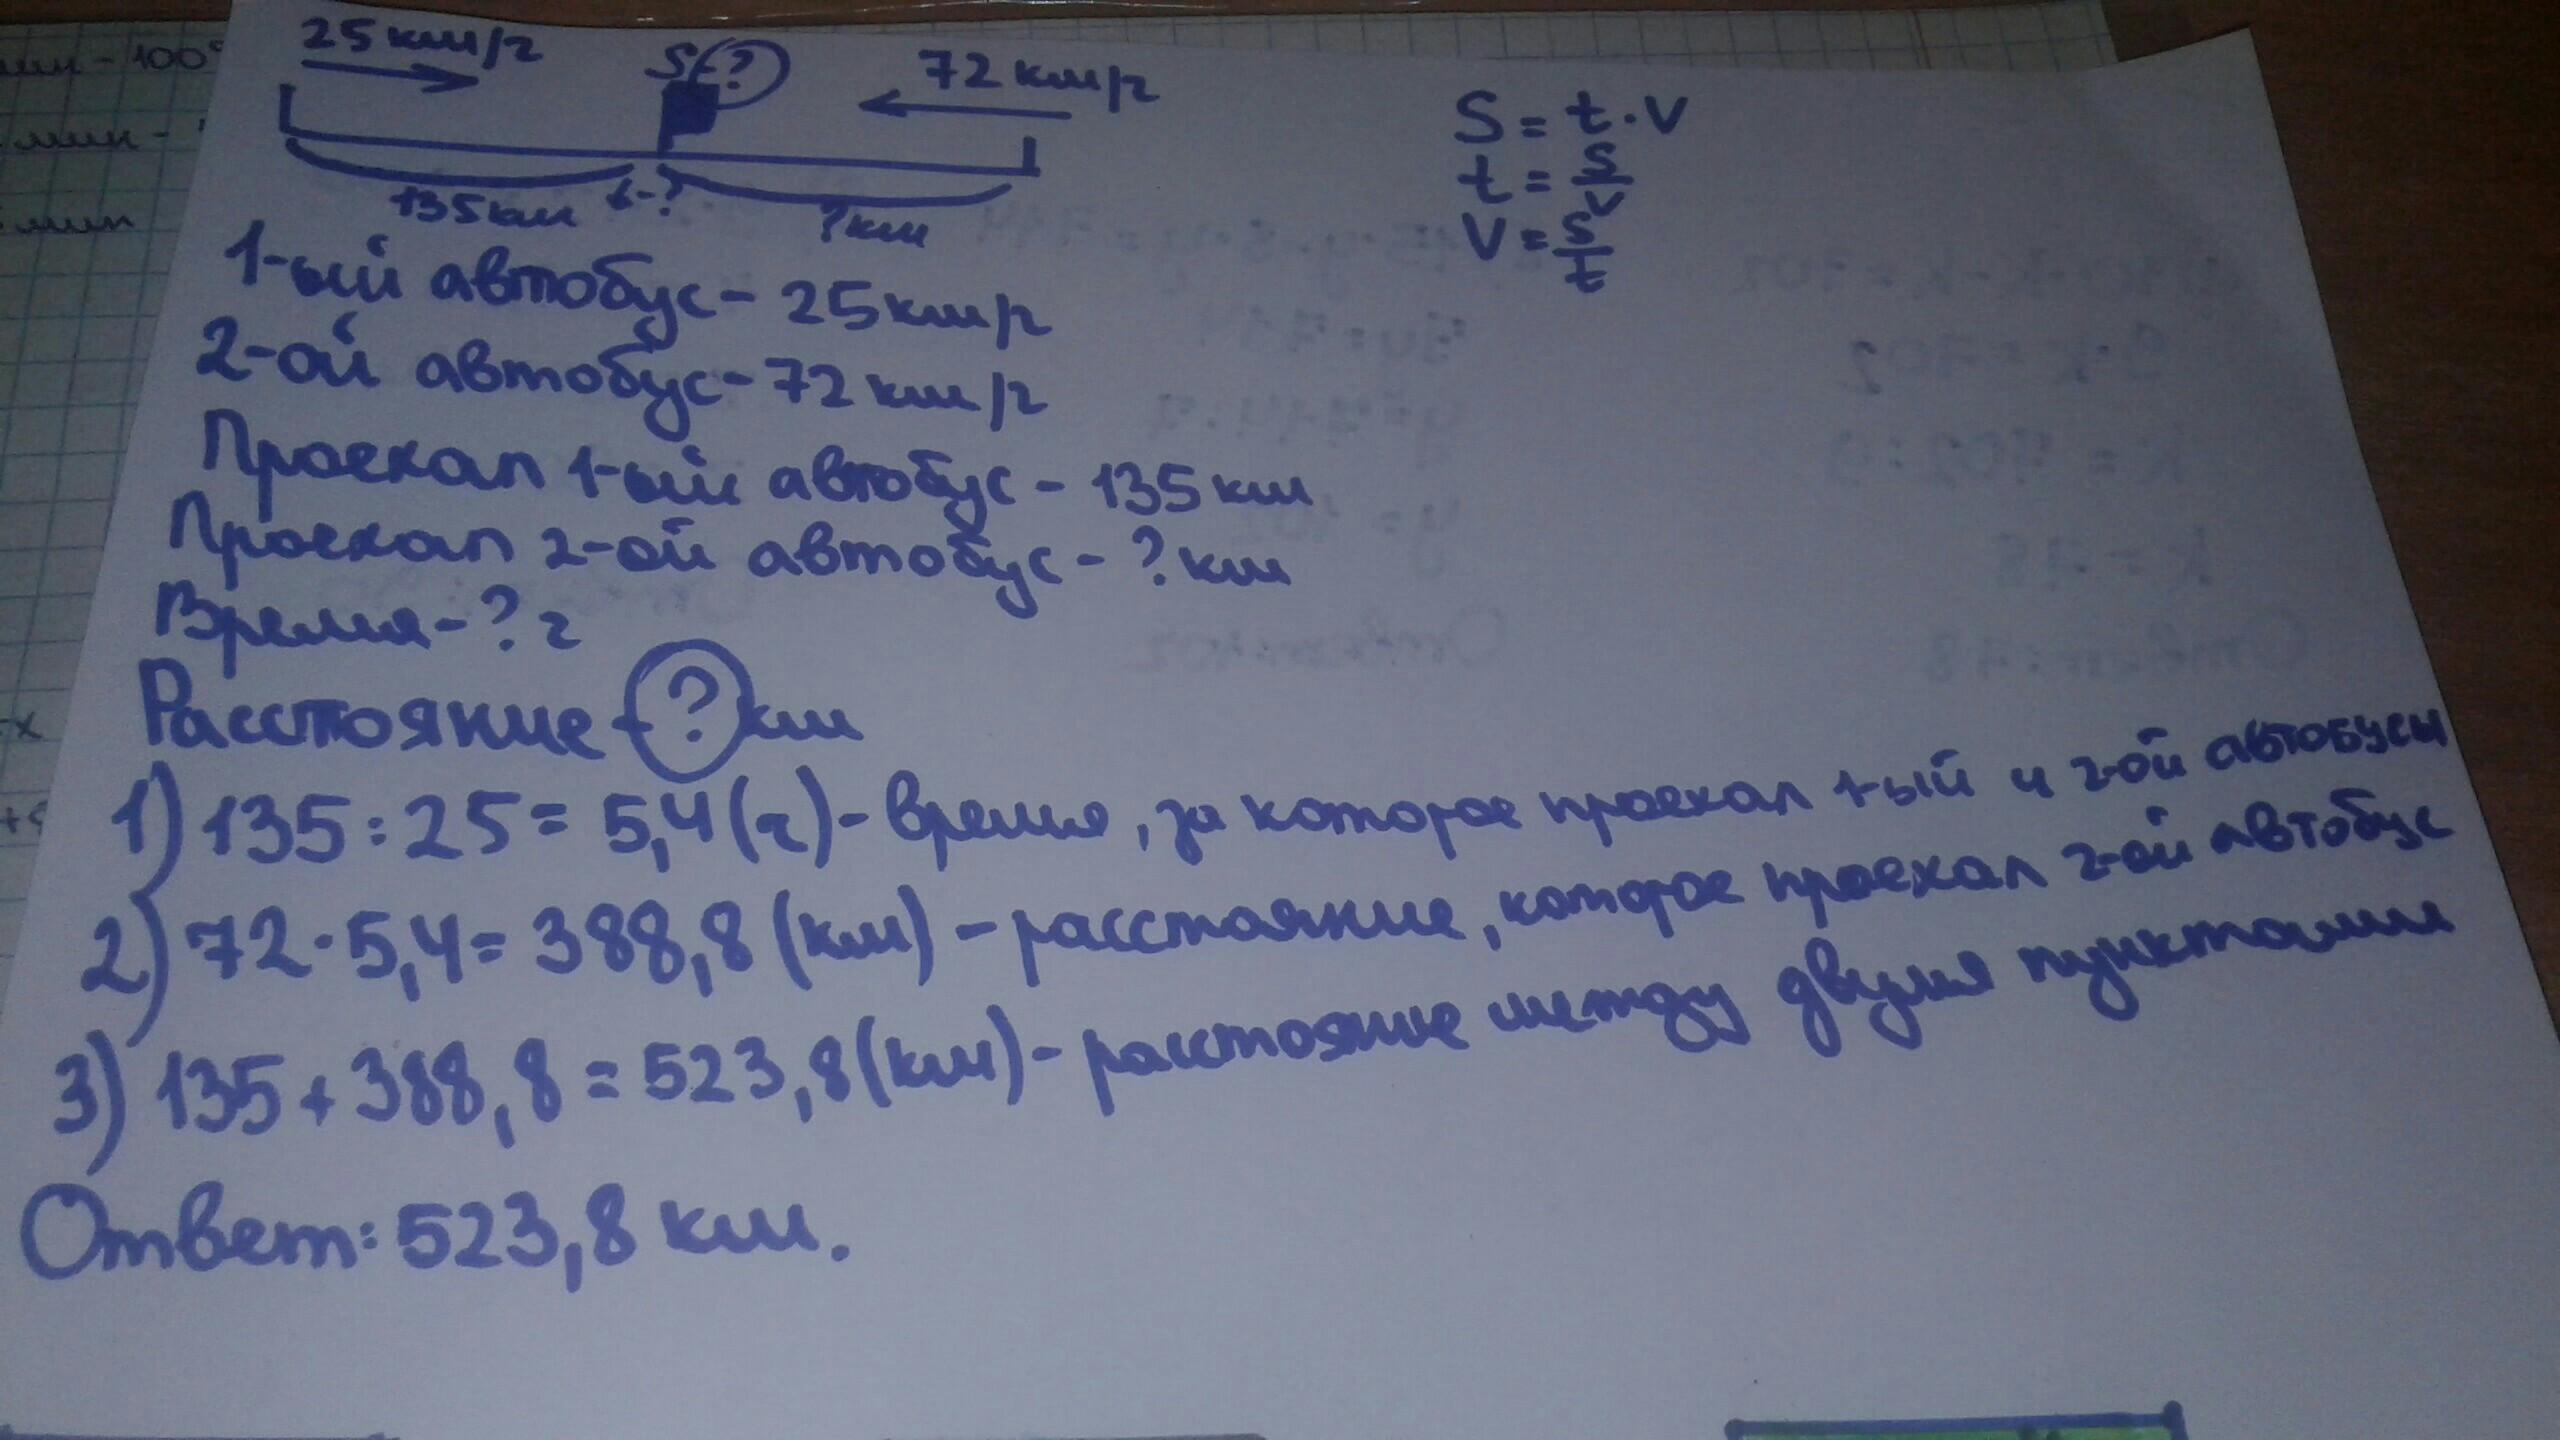 25 км/ч
S-?
72 км/ч
135 км
t-?
? км
S = t · V
t = S/V
V = S/t
1-ый автобус - 25 км/ч
2-ой автобус - 72 км/ч
Проехал 1-ый автобус - 135 км
Проехал 2-ой автобус - ? км
Время - ? ч
Расстояние - ? км
1) 135 : 25 = 5,4 (ч) - время, за которое проехал 1-ый и 2-ой автобусы
2) 72 · 5,4 = 388,8 (км) - расстояние, которое проехал 2-ой автобус
3) 135 + 388,8 = 523,8 (км) - расстояние между двумя пунктами
Ответ: 523,8 км.